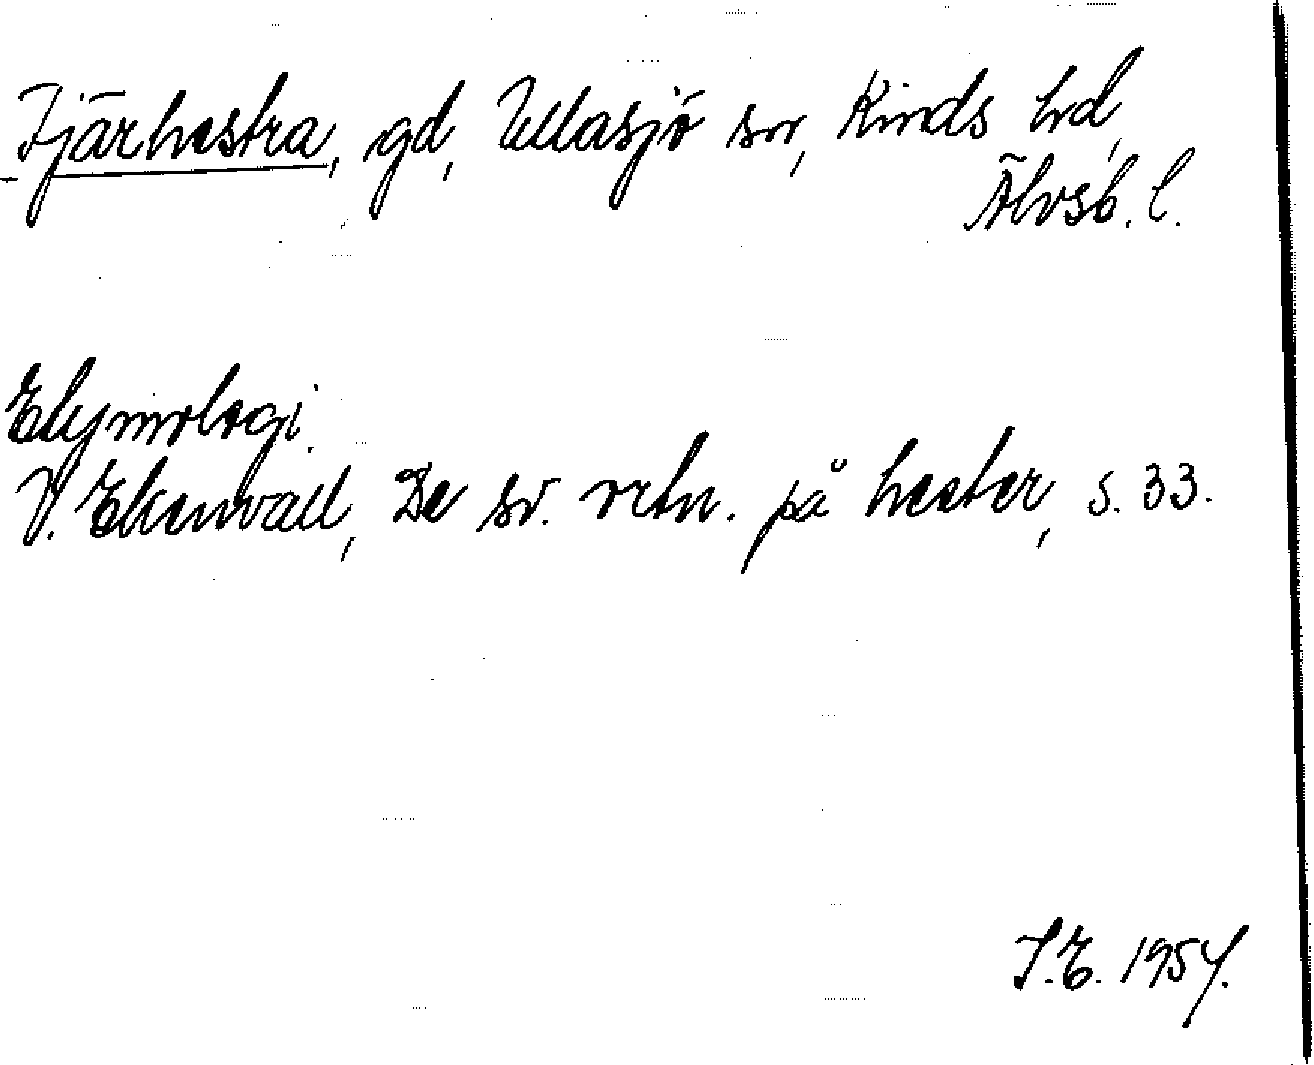 Tjärhestra, gd, Ullasjö sn, Kinds hd,
Älvsb. l.
Etymologi.
V. Ekenvall, De sv. ortn. på hester, s. 33.
I.E. 1954.